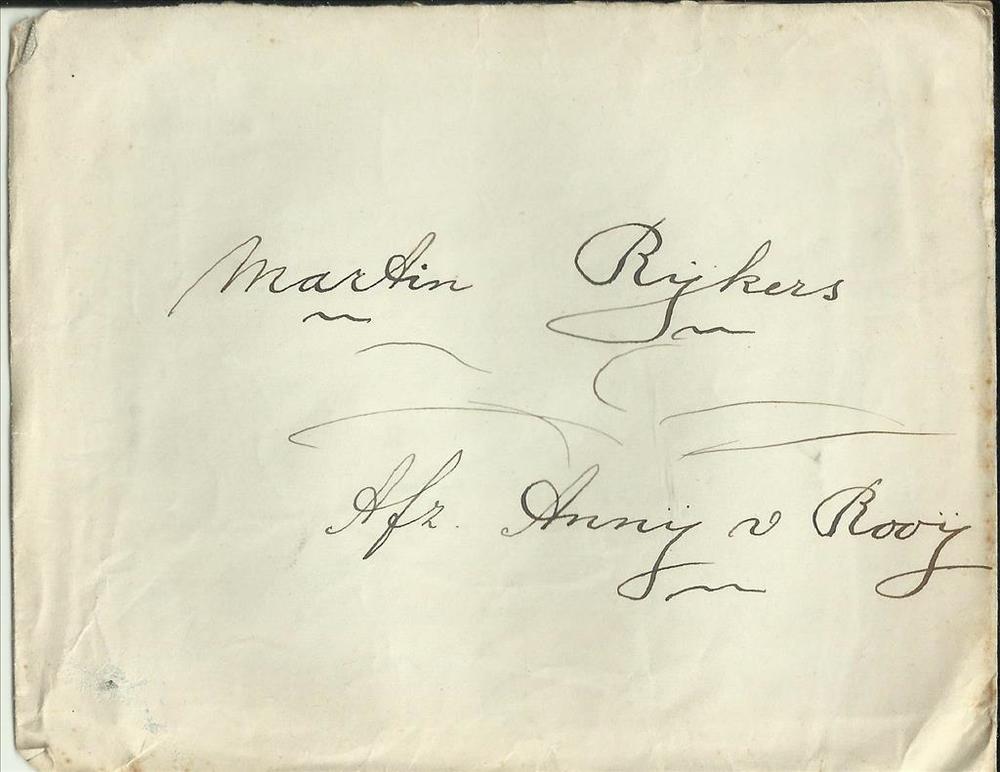 Martin Rijkers
Afz. Annij v Rooij